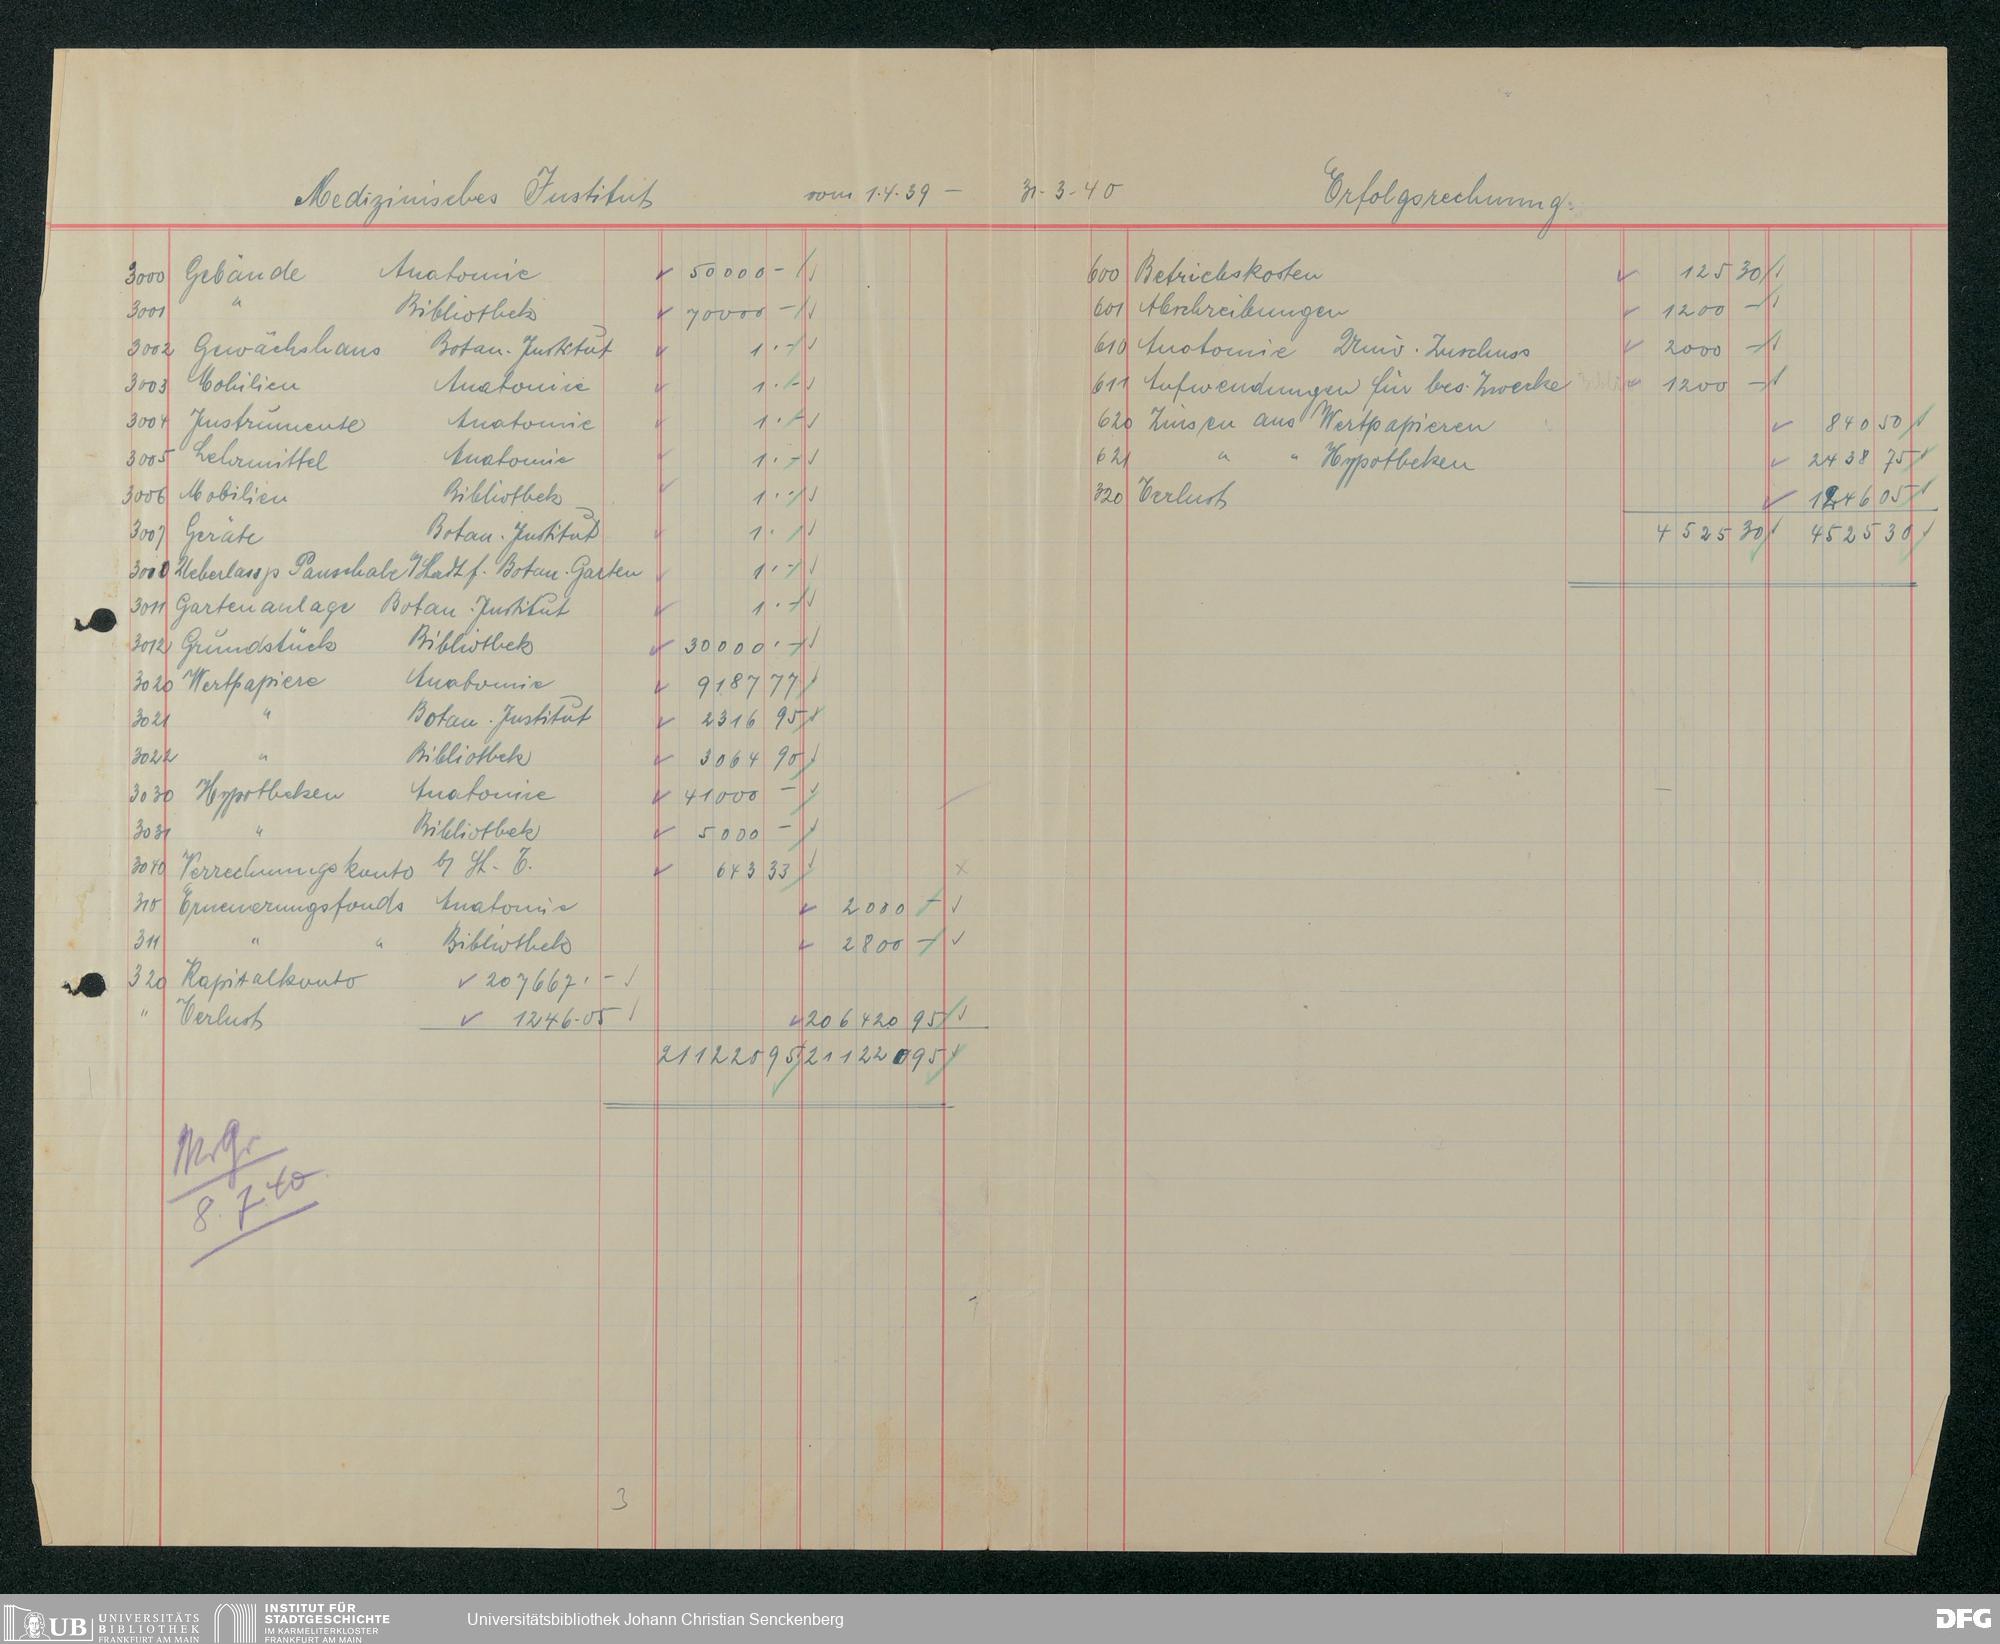 Medizinisches Institut vom 1.4.39 – 31.3.40 Erfolgsrechnung.
3000 Gebäude Anatomie 50000 –
3001 " Bibliothek 70000 –
3002 Gewächshaus Botan. Institut 1. –
3003 Mobilien Anatomie 1. –
3004 Instrumente Anatomie 1. –
3005 Lehrmittel Anatomie 1. –
3006 Mobilien Bibliothek 1. –
3007 Geräte Botan. Institut 1. –
3010 Ueberlassg Pauschale Stadt f. Botan. Garten 1. –
3011 Gartenanlage Botan. Institut 1. –
3012 Grundstück Bibliothek 30000. –
3020 Wertpapiere Anatomie 9187 77
3021 " Botan. Institut 2316 95
3022 " Bibliothek 3064 90
3030 Hypotheken Anatomie 41000 –
3031 " Bibliothek 5000 –
3040 Verrechnungskonto b/ St. V. 643 33
310 Erneuerungsfonds Anatomie 2000 –
311 " " Bibliothek 2800 –
320 Kapitalkonto 207667. –
" Verlust 1246.05 206420 95
211220 95 211220 95
8.7.40.
3
600 Betriebskosten 125 30
601 Abschreibungen 1200 –
610 Anatomie Univ. Zuschuss 2000 –
611 Aufwendungen für bes. Zwecke 1200 –
620 Zinsen aus Wertpapieren 840 50
621 " " Hypotheken 2438 75
320 Verlust 1246 05
4525 30 4525 30
UB UNIVERSITÄTS
BIBLIOTHEK
FRANKFURT AM MAIN
INSTITUT FÜR
STADTGESCHICHTE
IM KARMELITERKLOSTER
FRANKFURT AM MAIN
Universitätsbibliothek Johann Christian Senckenberg
DFG